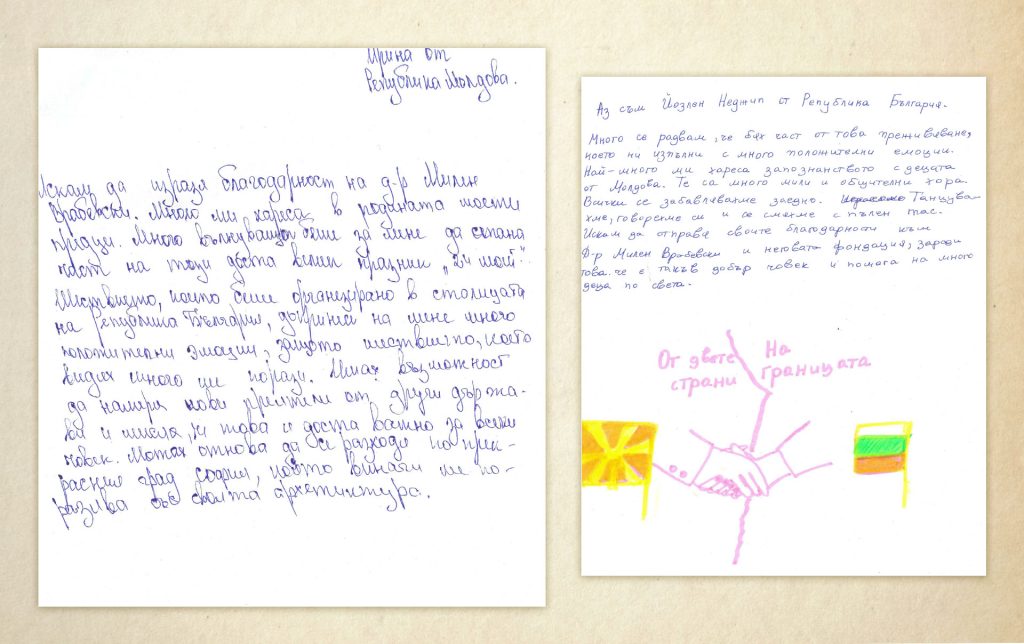 Ирина от
Република Молдова.
Искам да изразя благодарност на д-р Милен
Врабевски. Много ми хареса, в родината мости
придци. Много вълнуващо беше за мене да стана
част на този доста велик празник „24 май".
Шествието, което беше организирано в столицата
на Република България, донесе на мене много
положителни эмоции, защото шествието, което
видях много ме порази. Имах възможност
да намеря нови приятели от други държа-
ва и мисля, че това и доста важно за всеки
човек. Можах отнова да се разходя по прек-
расния град София, който винаги ме по-
разива със своята архетиктура.
Аз съм Йозлен Неджип от Република България.
Много се радвам, че бях част от това преживяване,
което ни изпълни с много положителни емоции.
Най-много ми хареса запознанството с децата
от Молдова. Те са много мили и общителни хора.
Всички се забавлявахме заедно. Танцува-
хме, говорехме си и се смеехме с пълен глас.
Искам да отправя своите благодарности към
Д-р Милен Врабевски и неговата фондация, заради
това че е такъв добър човек и помага на много
деца по света.
От двете
страни
На
границата